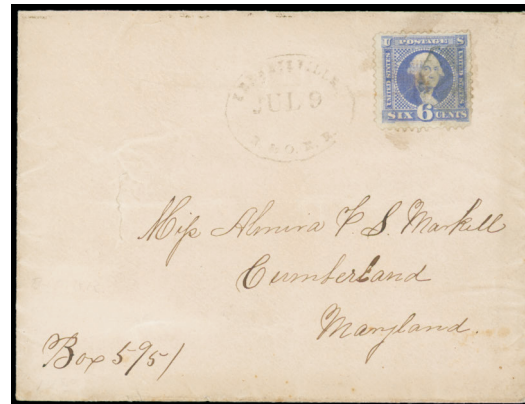 JUL 9
U S
POSTAGE
UNITED STATES
SIX 6 CENTS
Miſs Almira F. S. Markell
Cumberland
Maryland.
Box 595/